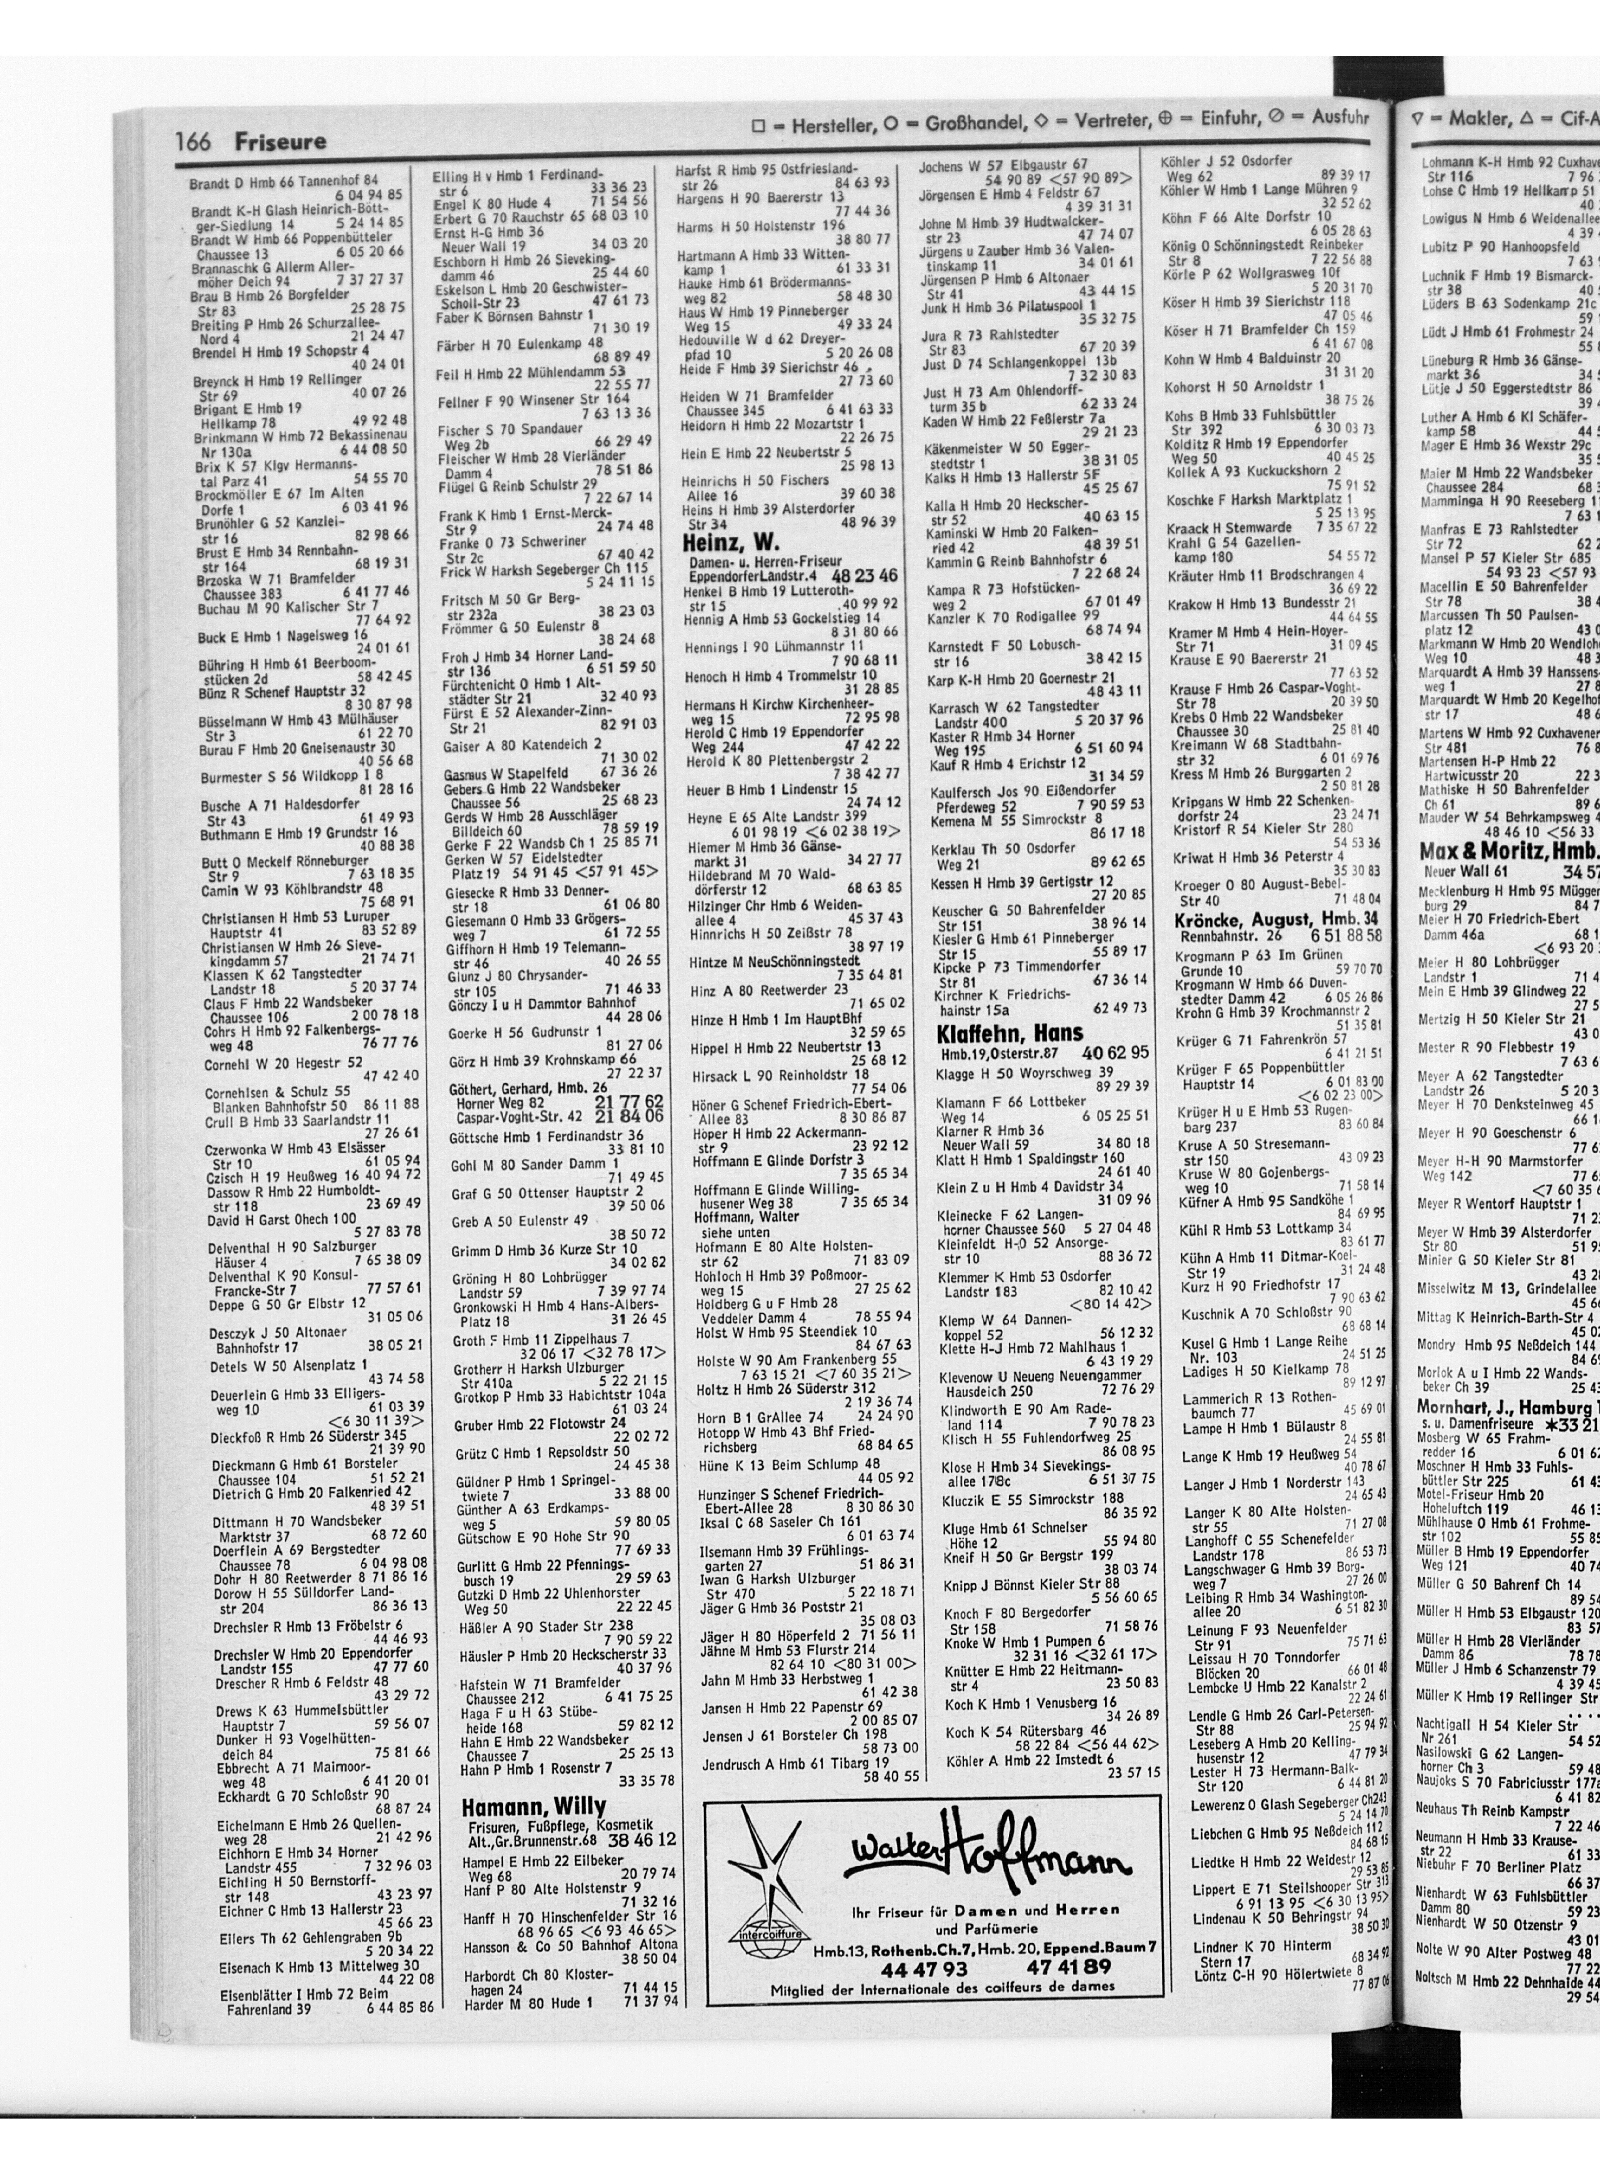 166 Friseure
□ = Hersteller, ○ = Großhandel, ◇ = Vertreter, ⊕ = Einfuhr, ∅ = Ausfuhr
Brandt D Hmb 66 Tannenhof 84
6 04 94 85
Brandt K-H Glash Heinrich-Bött-
ger-Siedlung 14 5 24 14 85
Brandt W Hmb 66 Poppenbütteler
Chaussee 13 6 05 20 66
Brannaschk G Allerm Aller-
möher Deich 94 7 37 27 37
Brau B Hmb 26 Borgfelder
Str 83 25 28 75
Breiting P Hmb 26 Schurzallee-
Nord 4 21 24 47
Brendel H Hmb 19 Schopstr 4
40 24 01
Breynck H Hmb 19 Rellinger
Str 69 40 07 26
Brigant E Hmb 19
Hellkamp 78 49 92 48
Brinkmann W Hmb 72 Bekassinenau
Nr 130a 6 44 08 50
Brix K 57 Klgv Hermanns-
tal Parz 41 54 55 70
Brockmöller E 67 Im Alten
Dorfe 1 6 03 41 96
Brunöhler G 52 Kanzlei-
str 16 82 98 66
Brust E Hmb 34 Rennbahn-
str 164 68 19 31
Brzoska W 71 Bramfelder
Chaussee 383 6 41 77 46
Buchau M 90 Kalischer Str 7
77 64 92
Buck E Hmb 1 Nagelsweg 16
24 01 61
Bühring H Hmb 61 Beerboom-
stücken 2d 58 42 45
Bünz R Schenef Hauptstr 32
8 30 87 98
Büsselmann W Hmb 43 Mülhäuser
Str 3 61 22 70
Burau F Hmb 20 Gneisenaustr 30
40 56 68
Burmester S 56 Wildkopp I 8
81 28 16
Busche A 71 Haldesdorfer
Str 43 61 49 93
Buthmann E Hmb 19 Grundstr 16
40 88 38
Butt O Meckelf Rönneburger
Str 9 7 63 18 35
Camin W 93 Köhlbrandstr 48
75 68 91
Christiansen H Hmb 53 Luruper
Hauptstr 41 83 52 89
Christiansen W Hmb 26 Sieve-
kingdamm 57 21 74 71
Klassen K 62 Tangstedter
Landstr 18 5 20 37 74
Claus F Hmb 22 Wandsbeker
Chaussee 106 2 00 78 18
Cohrs H Hmb 92 Falkenbergs-
weg 48 76 77 76
Cornehl W 20 Hegestr 52
47 42 40
Cornehlsen & Schulz 55
Blanken Bahnhofstr 50 86 11 88
Crull B Hmb 33 Saarlandstr 11
27 26 61
Czerwonka W Hmb 43 Elsässer
Str 10 61 05 94
Czisch H 19 Heußweg 16 40 94 72
Dassow R Hmb 22 Humboldt-
str 118 23 69 49
David H Garst Ohech 100
5 27 83 78
Delventhal H 90 Salzburger
Häuser 4 7 65 38 09
Delventhal K 90 Konsul-
Francke-Str 7 77 57 61
Deppe G 50 Gr Elbstr 12
31 05 06
Desczyk J 50 Altonaer
Bahnhofstr 17 38 05 21
Detels W 50 Alsenplatz 1
43 74 58
Deuerlein G Hmb 33 Elligers-
weg 10 61 03 39
<6 30 11 39>
Dieckfoß R Hmb 26 Süderstr 345
21 39 90
Dieckmann G Hmb 61 Borsteler
Chaussee 104 51 52 21
Dietrich G Hmb 20 Falkenried 42
48 39 51
Dittmann H 70 Wandsbeker
Marktstr 37 68 72 60
Doerflein A 69 Bergstedter
Chaussee 78 6 04 98 08
Dohr H 80 Reetwerder 8 71 86 16
Dorow H 55 Sülldorfer Land-
str 204 86 36 13
Drechsler R Hmb 13 Fröbelstr 6
44 46 93
Drechsler W Hmb 20 Eppendorfer
Landstr 155 47 77 60
Drescher R Hmb 6 Feldstr 48
43 29 72
Drews K 63 Hummelsbüttler
Hauptstr 7 59 56 07
Dunker H 93 Vogelhütten-
deich 84 75 81 66
Ebbrecht A 71 Maimoor-
weg 48 6 41 20 01
Eckhardt G 70 Schloßstr 90
68 87 24
Eichelmann E Hmb 26 Quellen-
weg 28 21 42 96
Eichhorn E Hmb 34 Horner
Landstr 455 7 32 96 03
Eichling H 50 Bernstorff-
str 148 43 23 97
Eichner C Hmb 13 Hallerstr 23
45 66 23
Eilers Th 62 Gehlengraben 9b
5 20 34 22
Eisenach K Hmb 13 Mittelweg 30
44 22 08
Eisenblätter I Hmb 72 Beim
Fahrenland 39 6 44 85 86
Elling H v Hmb 1 Ferdinand-
str 6 33 36 23
Engel K 80 Hude 4 71 54 56
Erbert G 70 Rauchstr 65 68 03 10
Ernst H-G Hmb 36
Neuer Wall 19 34 03 20
Eschborn H Hmb 26 Sieveking-
damm 46 25 44 60
Eskelson L Hmb 20 Geschwister-
Scholl-Str 23 47 61 73
Faber K Börnsen Bahnstr 1
71 30 19
Färber H 70 Eulenkamp 48
68 89 49
Feil H Hmb 22 Mühlendamm 53
22 55 77
Fellner F 90 Winsener Str 164
7 63 13 36
Fischer S 70 Spandauer
Weg 2b 66 29 49
Fleischer W Hmb 28 Vierländer
Damm 4 78 51 86
Flügel G Reinb Schulstr 29
7 22 67 14
Frank K Hmb 1 Ernst-Merck-
Str 9 24 74 48
Franke O 73 Schweriner
Str 2c 67 40 42
Frick W Harksh Segeberger Ch 115
5 24 11 15
Fritsch M 50 Gr Berg-
str 232a 38 23 03
Frömmer G 50 Eulenstr 8
38 24 68
Froh J Hmb 34 Horner Land-
str 136 6 51 59 50
Fürchtenicht O Hmb 1 Alt-
städter Str 21 32 40 93
Fürst E 52 Alexander-Zinn-
Str 21 82 91 03
Gaiser A 80 Katendeich 2
71 30 02
Gasmus W Stapelfeld 67 36 26
Gebers G Hmb 22 Wandsbeker
Chaussee 56 25 68 23
Gerds W Hmb 28 Ausschläger
Billdeich 60 78 59 19
Gerke F 22 Wandsb Ch 1 25 85 71
Gerken W 57 Eidelstedter
Platz 19 54 91 45 <57 91 45>
Giesecke R Hmb 33 Denner-
str 18 61 06 80
Giesemann O Hmb 33 Grögers-
weg 7 61 72 55
Giffhorn H Hmb 19 Telemann-
str 46 40 26 55
Glunz J 80 Chrysander-
str 105 71 46 33
Gönczy I u H Dammtor Bahnhof
44 28 06
Goerke H 56 Gudrunstr 1
81 27 06
Görz H Hmb 39 Krohnskamp 66
27 22 37
Göthert, Gerhard, Hmb. 26
Horner Weg 82 21 77 62
Caspar-Voght-Str. 42 21 84 06
Göttsche Hmb 1 Ferdinandstr 36
33 81 10
Gohl M 80 Sander Damm 1
71 49 45
Graf G 50 Ottenser Hauptstr 2
39 50 06
Greb A 50 Eulenstr 49
38 50 72
Grimm D Hmb 36 Kurze Str 10
34 02 82
Gröning H 80 Lohbrügger
Landstr 59 7 39 97 74
Gronkowski H Hmb 4 Hans-Albers-
Platz 18 31 26 45
Groth F Hmb 11 Zippelhaus 7
32 06 17 <32 78 17>
Grotherr H Harksh Ulzburger
Str 410a 5 22 21 15
Grotkop P Hmb 33 Habichtstr 104a
61 03 24
Gruber Hmb 22 Flotowstr 24
22 02 72
Grütz C Hmb 1 Repsoldstr 50
24 45 38
Güldner P Hmb 1 Springel-
twiete 7 33 88 00
Günther A 63 Erdkamps-
weg 5 59 80 05
Gütschow E 90 Hohe Str 90
77 69 33
Gurlitt G Hmb 22 Pfennings-
busch 19 29 59 63
Gutzki D Hmb 22 Uhlenhorster
Weg 50 22 22 45
Häßler A 90 Stader Str 238
7 90 59 22
Häusler P Hmb 20 Heckscherstr 33
40 37 96
Hafstein W 71 Bramfelder
Chaussee 212 6 41 75 25
Haga F u H 63 Stübe-
heide 168 59 82 12
Hahn E Hmb 22 Wandsbeker
Chaussee 7 25 25 13
Hahn P Hmb 1 Rosenstr 7
33 35 78
Hamann, Willy
Frisuren, Fußpflege, Kosmetik
Alt.,Gr.Brunnenstr.68 38 46 12
Hampel E Hmb 22 Eilbeker
Weg 68 20 79 74
Hanf P 80 Alte Holstenstr 9
71 32 16
Hanff H 70 Hinschenfelder Str 16
68 96 65 <6 93 46 65>
Hansson & Co 50 Bahnhof Altona
38 50 04
Harbordt Ch 80 Kloster-
hagen 24 71 44 15
Harder M 80 Hude 1 71 37 94
Harfst R Hmb 95 Ostfriesland-
str 26 84 63 93
Hargens H 90 Baererstr 13
77 44 36
Harms H 50 Holstenstr 196
38 80 77
Hartmann A Hmb 33 Witten-
kamp 1 61 33 31
Hauke Hmb 61 Brödermanns-
weg 82 58 48 30
Haus W Hmb 19 Pinneberger
Weg 15 49 33 24
Hedouville W d 62 Dreyer-
pfad 10 5 20 26 08
Heide F Hmb 39 Sierichstr 46
27 73 60
Heiden W 71 Bramfelder
Chaussee 345 6 41 63 33
Heidorn H Hmb 22 Mozartstr 1
22 26 75
Hein E Hmb 22 Neubertstr 5
25 98 13
Heinrichs H 50 Fischers
Allee 16 39 60 38
Heins H Hmb 39 Alsterdorfer
Str 34 48 96 39
Heinz, W.
Damen- u. Herren-Friseur
EppendorferLandstr.4 48 23 46
Henkel B Hmb 19 Lutteroth-
str 15 40 99 92
Hennig A Hmb 53 Gockelstieg 14
8 31 80 66
Hennings I 90 Lühmannstr 11
7 90 68 11
Henoch H Hmb 4 Trommelstr 10
31 28 85
Hermans H Kirchw Kirchenheer-
weg 15 72 95 98
Herold C Hmb 19 Eppendorfer
Weg 244 47 42 22
Herold K 80 Plettenbergstr 2
7 38 42 77
Heuer B Hmb 1 Lindenstr 15
24 74 12
Heyne E 65 Alte Landstr 399
6 01 98 19 <6 02 38 19>
Hiemer M Hmb 36 Gänse-
markt 31 34 27 77
Hildebrand M 70 Wald-
dörferstr 12 68 63 85
Hilzinger Chr Hmb 6 Weiden-
allee 4 45 37 43
Hinnrichs H 50 Zeißstr 78
38 97 19
Hintze M NeuSchönningstedt
7 35 64 81
Hinz A 80 Reetwerder 23
71 65 02
Hinze H Hmb 1 Im HauptBhf
32 59 65
Hippel H Hmb 22 Neubertstr 13
25 68 12
Hirsack L 90 Reinholdstr 18
77 54 06
Höner G Schenef Friedrich-Ebert-
Allee 83 8 30 86 87
Höper H Hmb 22 Ackermann-
str 9 23 92 12
Hoffmann E Glinde Dorfstr 3
7 35 65 34
Hoffmann E Glinde Willing-
husener Weg 38 7 35 65 34
Hoffmann, Walter
siehe unten
Hofmann E 80 Alte Holsten-
str 62 71 83 09
Hohloch H Hmb 39 Poßmoor-
weg 15 27 25 62
Holdberg G u F Hmb 28
Veddeler Damm 4 78 55 94
Holst W Hmb 95 Steendiek 10
84 67 63
Holste W 90 Am Frankenberg 55
7 63 15 21 <7 60 35 21>
Holtz H Hmb 26 Süderstr 312
2 19 36 74
Horn B 1 GrAllee 74 24 24 90
Hotopp W Hmb 43 Bhf Fried-
richsberg 68 84 65
Hüne K 13 Beim Schlump 48
44 05 92
Hunzinger S Schenef Friedrich-
Ebert-Allee 28 8 30 86 30
Iksal C 68 Saseler Ch 161
6 01 63 74
Ilsemann Hmb 39 Frühlings-
garten 27 51 86 31
Iwan G Harksh Ulzburger
Str 470 5 22 18 71
Jäger G Hmb 36 Poststr 21
35 08 03
Jäger H 80 Höperfeld 2 71 56 11
Jähne M Hmb 53 Flurstr 214
82 64 10 <80 31 00>
Jahn M Hmb 33 Herbstweg 1
61 42 38
Jansen H Hmb 22 Papenstr 69
2 00 85 07
Jensen J 61 Borsteler Ch 198
58 73 00
Jendrusch A Hmb 61 Tibarg 19
58 40 55
Jochens W 57 Elbgaustr 67
54 90 89 <57 90 89>
Jörgensen E Hmb 4 Feldstr 67
4 39 31 31
Johne M Hmb 39 Hudtwalcker-
str 23 47 74 07
Jürgens u Zauber Hmb 36 Valen-
tinskamp 11 34 01 61
Jürgensen P Hmb 6 Altonaer
Str 41 43 44 15
Junk H Hmb 36 Pilatuspool 1
35 32 75
Jura R 73 Rahlstedter
Str 83 67 20 39
Just D 74 Schlangenkoppel 13b
7 32 30 83
Just H 73 Am Ohlendorff-
turm 35 b 62 33 24
Kaden W Hmb 22 Feßlerstr 7a
29 21 23
Käkenmeister W 50 Egger-
stedtstr 1 38 31 05
Kalks H Hmb 13 Hallerstr 5F
45 25 67
Kalla H Hmb 20 Heckscher-
str 52 40 63 15
Kaminski W Hmb 20 Falken-
ried 42 48 39 51
Kammin G Reinb Bahnhofstr 6
7 22 68 24
Kampa R 73 Hofstücken-
weg 2 67 01 49
Kanzler K 70 Rodigallee 99
68 74 94
Karnstedt F 50 Lobusch-
str 16 38 42 15
Karp K-H Hmb 20 Goernestr 21
48 43 11
Karrasch W 62 Tangstedter
Landstr 400 5 20 37 96
Kaster R Hmb 34 Horner
Weg 195 6 51 60 94
Kauf R Hmb 4 Erichstr 12
31 34 59
Kaulfersch Jos 90 Eißendorfer
Pferdeweg 52 7 90 59 53
Kemena M 55 Simrockstr 8
86 17 18
Kerklau Th 50 Osdorfer
Weg 21 89 62 65
Kessen H Hmb 39 Gertigstr 12
27 20 85
Keuscher G 50 Bahrenfelder
Str 151 38 96 14
Kiesler G Hmb 61 Pinneberger
Str 15 55 89 17
Kipcke P 73 Timmendorfer
Str 81 67 36 14
Kirchner K Friedrichs-
hainstr 15a 62 49 73
Klaffehn, Hans
Hmb.19,Osterstr.87 40 62 95
Klagge H 50 Woyrschweg 39
89 29 39
Klamann F 66 Lottbeker
Weg 14 6 05 25 51
Klarner R Hmb 36
Neuer Wall 59 34 80 18
Klatt H Hmb 1 Spaldingstr 160
24 61 40
Klein Z u H Hmb 4 Davidstr 34
31 09 96
Kleinecke F 62 Langen-
horner Chaussee 560 5 27 04 48
Kleinfeldt H-O 52 Ansorge-
str 10 88 36 72
Klemmer K Hmb 53 Osdorfer
Landstr 183 82 10 42
<80 14 42>
Klemp W 64 Dannen-
koppel 52 56 12 32
Klette H-J Hmb 72 Mahlhaus 1
6 43 19 29
Klevenow U Neueng Neuengammer
Hausdeich 250 72 76 29
Klindworth E 90 Am Rade-
land 114 7 90 78 23
Klisch H 55 Fuhlendorfweg 25
86 08 95
Klose H Hmb 34 Sievekings-
allee 178c 6 51 37 75
Kluczik E 55 Simrockstr 188
86 35 92
Kluge Hmb 61 Schnelser
Höhe 12 55 94 80
Kneif H 50 Gr Bergstr 199
38 03 74
Knipp J Bönnst Kieler Str 88
5 56 60 65
Knoch F 80 Bergedorfer
Str 158 71 58 76
Knoke W Hmb 1 Pumpen 6
32 31 16 <32 61 17>
Knütter E Hmb 22 Heitmann-
str 4 23 50 83
Koch K Hmb 1 Venusberg 16
34 26 89
Koch K 54 Rütersbarg 46
58 22 84 <56 44 62>
Köhler A Hmb 22 Imstedt 6
23 57 15
Walter Hoffmann
intercoiffure
Ihr Friseur für Damen und Herren
und Parfümerie
Hmb.13, Rothenb.Ch.7, Hmb. 20, Eppend.Baum 7
44 47 93 47 41 89
Mitglied der Internationale des coiffeurs de dames
Köhler J 52 Osdorfer
Weg 62 89 39 17
Köhler W Hmb 1 Lange Mühren 9
32 52 62
Köhn F 66 Alte Dorfstr 10
6 05 28 63
König O Schönningstedt Reinbeker
Str 8 7 22 56 88
Körle P 62 Wollgrasweg 10f
5 20 31 70
Köser H Hmb 39 Sierichstr 118
47 05 46
Köser H 71 Bramfelder Ch 159
6 41 67 08
Kohn W Hmb 4 Balduinstr 20
31 31 20
Kohorst H 50 Arnoldstr 1
38 75 26
Kohs B Hmb 33 Fuhlsbüttler
Str 392 6 30 03 73
Kolditz R Hmb 19 Eppendorfer
Weg 50 40 45 25
Kollek A 93 Kuckuckshorn 2
75 91 52
Koschke F Harksh Marktplatz 1
5 25 13 95
Kraack H Stemwarde 7 35 67 22
Krahl G 54 Gazellen-
kamp 180 54 55 72
Kräuter Hmb 11 Brodschrangen 4
36 69 22
Krakow H Hmb 13 Bundesstr 21
44 64 55
Kramer M Hmb 4 Hein-Hoyer-
Str 71 31 09 45
Krause E 90 Baererstr 21
77 63 52
Krause F Hmb 26 Caspar-Voght-
Str 78 20 39 50
Krebs O Hmb 22 Wandsbeker
Chaussee 30 25 81 40
Kreimann W 68 Stadtbahn-
str 32 6 01 69 76
Kress M Hmb 26 Burggarten 2
2 50 81 28
Kripgans W Hmb 22 Schenken-
dorfstr 24 23 24 71
Kristorf R 54 Kieler Str 280
54 53 36
Kriwat H Hmb 36 Peterstr 4
35 30 83
Kroeger O 80 August-Bebel-
Str 40 71 48 04
Kröncke, August, Hmb. 34
Rennbahnstr. 26 6 51 88 58
Krogmann P 63 Im Grünen
Grunde 10 59 70 70
Krogmann W Hmb 66 Duven-
stedter Damm 42 6 05 26 86
Krohn G Hmb 39 Krochmannstr 2
51 35 81
Krüger G 71 Fahrenkrön 57
6 41 21 51
Krüger F 65 Poppenbüttler
Hauptstr 14 6 01 83 00
<6 02 23 00>
Krüger H u E Hmb 53 Rugen-
barg 237 83 60 84
Kruse A 50 Stresemann-
str 150 43 09 23
Kruse W 80 Gojenbergs-
weg 10 71 58 14
Küfner A Hmb 95 Sandköhe 1
84 69 95
Kühl R Hmb 53 Lottkamp 34
83 61 77
Kühn A Hmb 11 Ditmar-Koel-
Str 19 31 24 48
Kurz H 90 Friedhofstr 17
7 90 63 62
Kuschnik A 70 Schloßstr 90
68 68 14
Kusel G Hmb 1 Lange Reihe
Nr. 103 24 51 25
Ladiges H 50 Kielkamp 78
89 12 97
Lammerich R 13 Rothen-
baumch 77 45 69 01
Lampe H Hmb 1 Bülaustr 8
24 55 81
Lange K Hmb 19 Heußweg 54
40 78 67
Langer J Hmb 1 Norderstr 143
24 65 43
Langer K 80 Alte Holsten-
str 55 71 27 08
Langhoff C 55 Schenefelder
Landstr 178 86 53 73
Langschwager G Hmb 39 Borg-
weg 7 27 26 00
Leibing R Hmb 34 Washington-
allee 20 6 51 82 30
Leinung F 93 Neuenfelder
Str 91 75 71 63
Leissau H 70 Tonndorfer
Blöcken 20 66 01 48
Lembcke U Hmb 22 Kanalstr 2
22 24 61
Lendle G Hmb 26 Carl-Petersen-
Str 88 25 94 92
Leseberg A Hmb 20 Kelling-
husenstr 12 47 79 34
Lester H 73 Hermann-Balk-
Str 120 6 44 81 20
Lewerenz O Glash Segeberger Ch243
5 24 14 70
Liebchen G Hmb 95 Neßdeich 112
84 68 15
Liedtke H Hmb 22 Weidestr 12
29 53 85
Lippert E 71 Steilshooper Str 313
6 91 13 95 <6 30 13 95>
Lindenau K 50 Behringstr 94
38 50 30
Lindner K 70 Hinterm
Stern 17 68 34 92
Löntz C-H 90 Hölertwiete 8
77 87 06
▽ = Makler, △ = Cif-A
Lohmann K-H Hmb 92 Cuxhave
Str 116 7 96
Lohse C Hmb 19 Hellkamp 51
40
Lowigus N Hmb 6 Weidenallee
4 39
Lubitz P 90 Hanhoopsfeld
7 63
Luchnik F Hmb 19 Bismarck-
str 38 40
Lüders B 63 Sodenkamp 21c
59
Lüdt J Hmb 61 Frohmestr 24
55
Lüneburg R Hmb 36 Gänse-
markt 36 34
Lütje J 50 Eggerstedtstr 86
39
Luther A Hmb 6 Kl Schäfer-
kamp 58 44
Mager E Hmb 36 Wexstr 29c
35
Maier M Hmb 22 Wandsbeker
Chaussee 284 68
Mamminga H 90 Reeseberg 1
7 63
Manfras E 73 Rahlstedter
Str 72 62
Mansel P 57 Kieler Str 685
54 93 23 <57 93
Macellin E 50 Bahrenfelder
Str 78 38
Marcussen Th 50 Paulsen-
platz 12 43
Markmann W Hmb 20 Wendloh
Weg 10 48
Marquardt A Hmb 39 Hanssens-
weg 1 27
Marquardt W Hmb 20 Kegelhof
str 17 48
Martens W Hmb 92 Cuxhavener
Str 481 76
Martensen H-P Hmb 22
Hartwicusstr 20 22
Mathiske H 50 Bahrenfelder
Ch 61 89
Mauder W 54 Behrkampsweg
48 46 10 <56 33
Max & Moritz, Hmb.
Neuer Wall 61 34 57
Mecklenburg H Hmb 95 Mügger
burg 29 84
Meier H 70 Friedrich-Ebert
Damm 46a 68
<6 93 20
Meier H 80 Lohbrügger
Landstr 1 71
Mein E Hmb 39 Glindweg 22
27
Mertzig H 50 Kieler Str 21
43
Mester R 90 Flebbestr 19
7 63
Meyer A 62 Tangstedter
Landstr 26 5 20
Meyer H 70 Denksteinweg 45
66
Meyer H 90 Goeschenstr 6
77
Meyer H-H 90 Marmstorfer
Weg 142 77
<7 60 35
Meyer R Wentorf Hauptstr 1
71
Meyer W Hmb 39 Alsterdorfer
Str 80 51
Minier G 50 Kieler Str 81
43
Misselwitz M 13, Grindelallee
45
Mittag K Heinrich-Barth-Str 4
45
Mondry Hmb 95 Neßdeich 144
84
Morlok A u I Hmb 22 Wands-
beker Ch 39 25
Mornhart, J., Hamburg 1
s. u. Damenfriseure ∗33 21
Mosberg W 65 Frahm-
redder 16 6 01
Moschner H Hmb 33 Fuhls-
büttler Str 225 61
Motel-Friseur Hmb 20
Hoheluftch 119 46
Mühlhause O Hmb 61 Frohme-
str 102 55
Müller B Hmb 19 Eppendorfer
Weg 121 40
Müller G 50 Bahrenf Ch 14
89
Müller H Hmb 53 Elbgaustr 120
83
Müller H Hmb 28 Vierländer
Damm 86 78
Müller J Hmb 6 Schanzenstr 79
4 39
Müller K Hmb 19 Rellinger Str
. . . .
Nachtigall H 54 Kieler Str
Nr 261 54
Nasilowski G 62 Langen-
horner Ch 3 59
Naujoks S 70 Fabriciusstr 177a
6 41
Neuhaus Th Reinb Kampstr
7 22
Neumann H Hmb 33 Krause-
str 22 61
Niebuhr F 70 Berliner Platz
66
Nienhardt W 63 Fuhlsbüttler
Damm 80 59
Nienhardt W 50 Otzenstr 9
43
Nolte W 90 Alter Postweg 48
77
Noltsch M Hmb 22 Dehnhaide 44
29